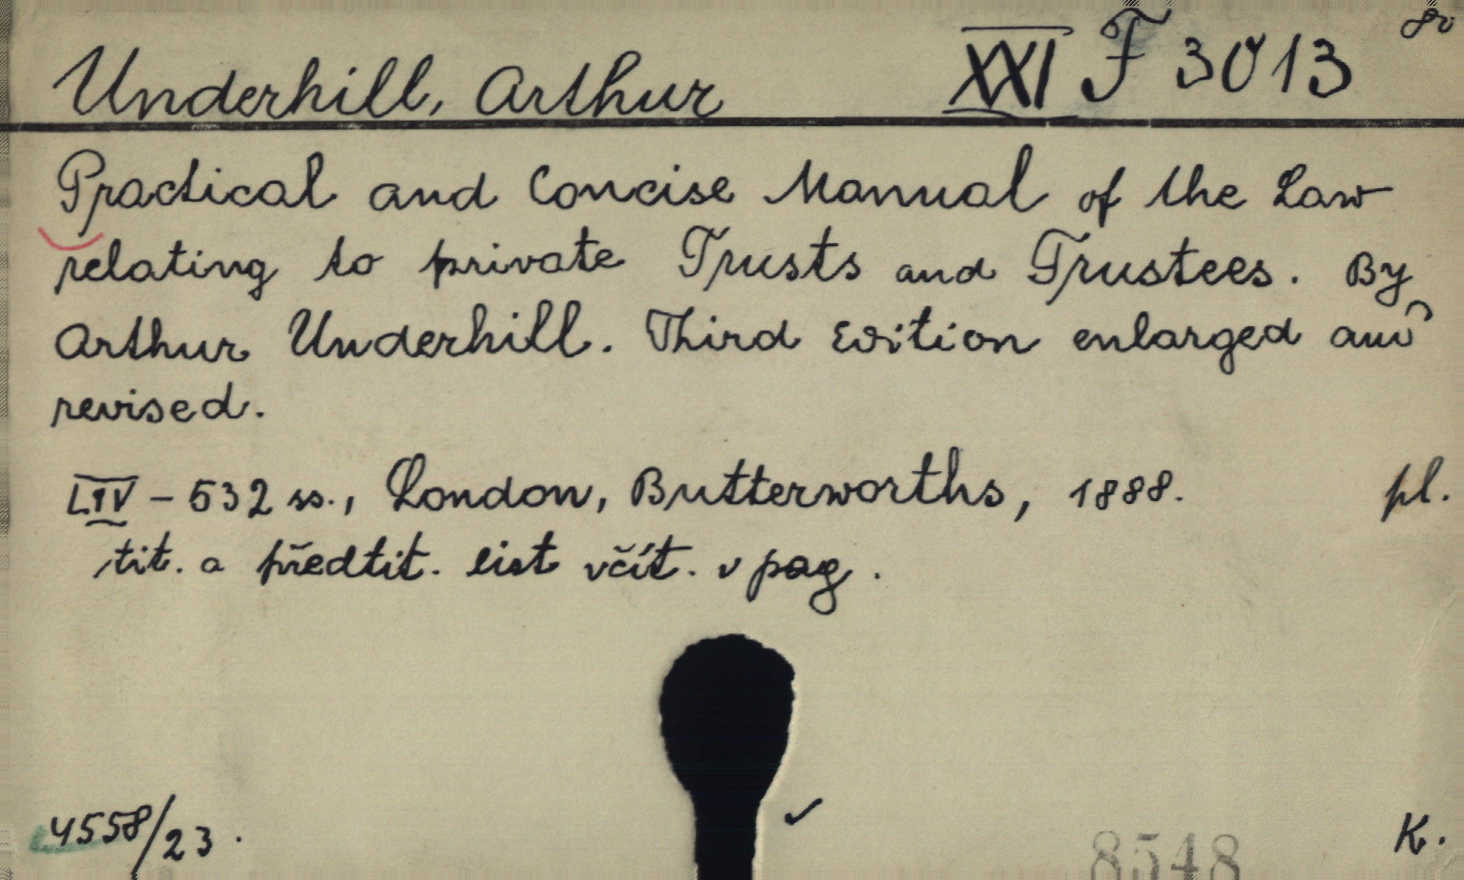 Underhill, Arthur XXI F 3013 8°
Practical and Concise Manual of the Law
relating to private Trusts and Trustees. By
Arthur Underhill. Third Edition enlarged and
revised.
LIV - 532 ss., London, Butterworths, 1888. pl.
tit. a předtit. list včít. v pag.
4558/23.
8548
K.